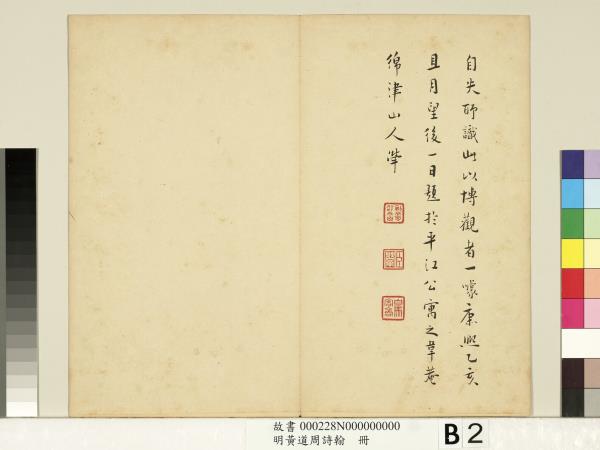 自失師識此以博觀者一噱康熙乙亥
且月望後一日題於平江公寓之葦菴
綿津山人犖
故書 000228N000000000
明黃道周詩翰 冊
B2